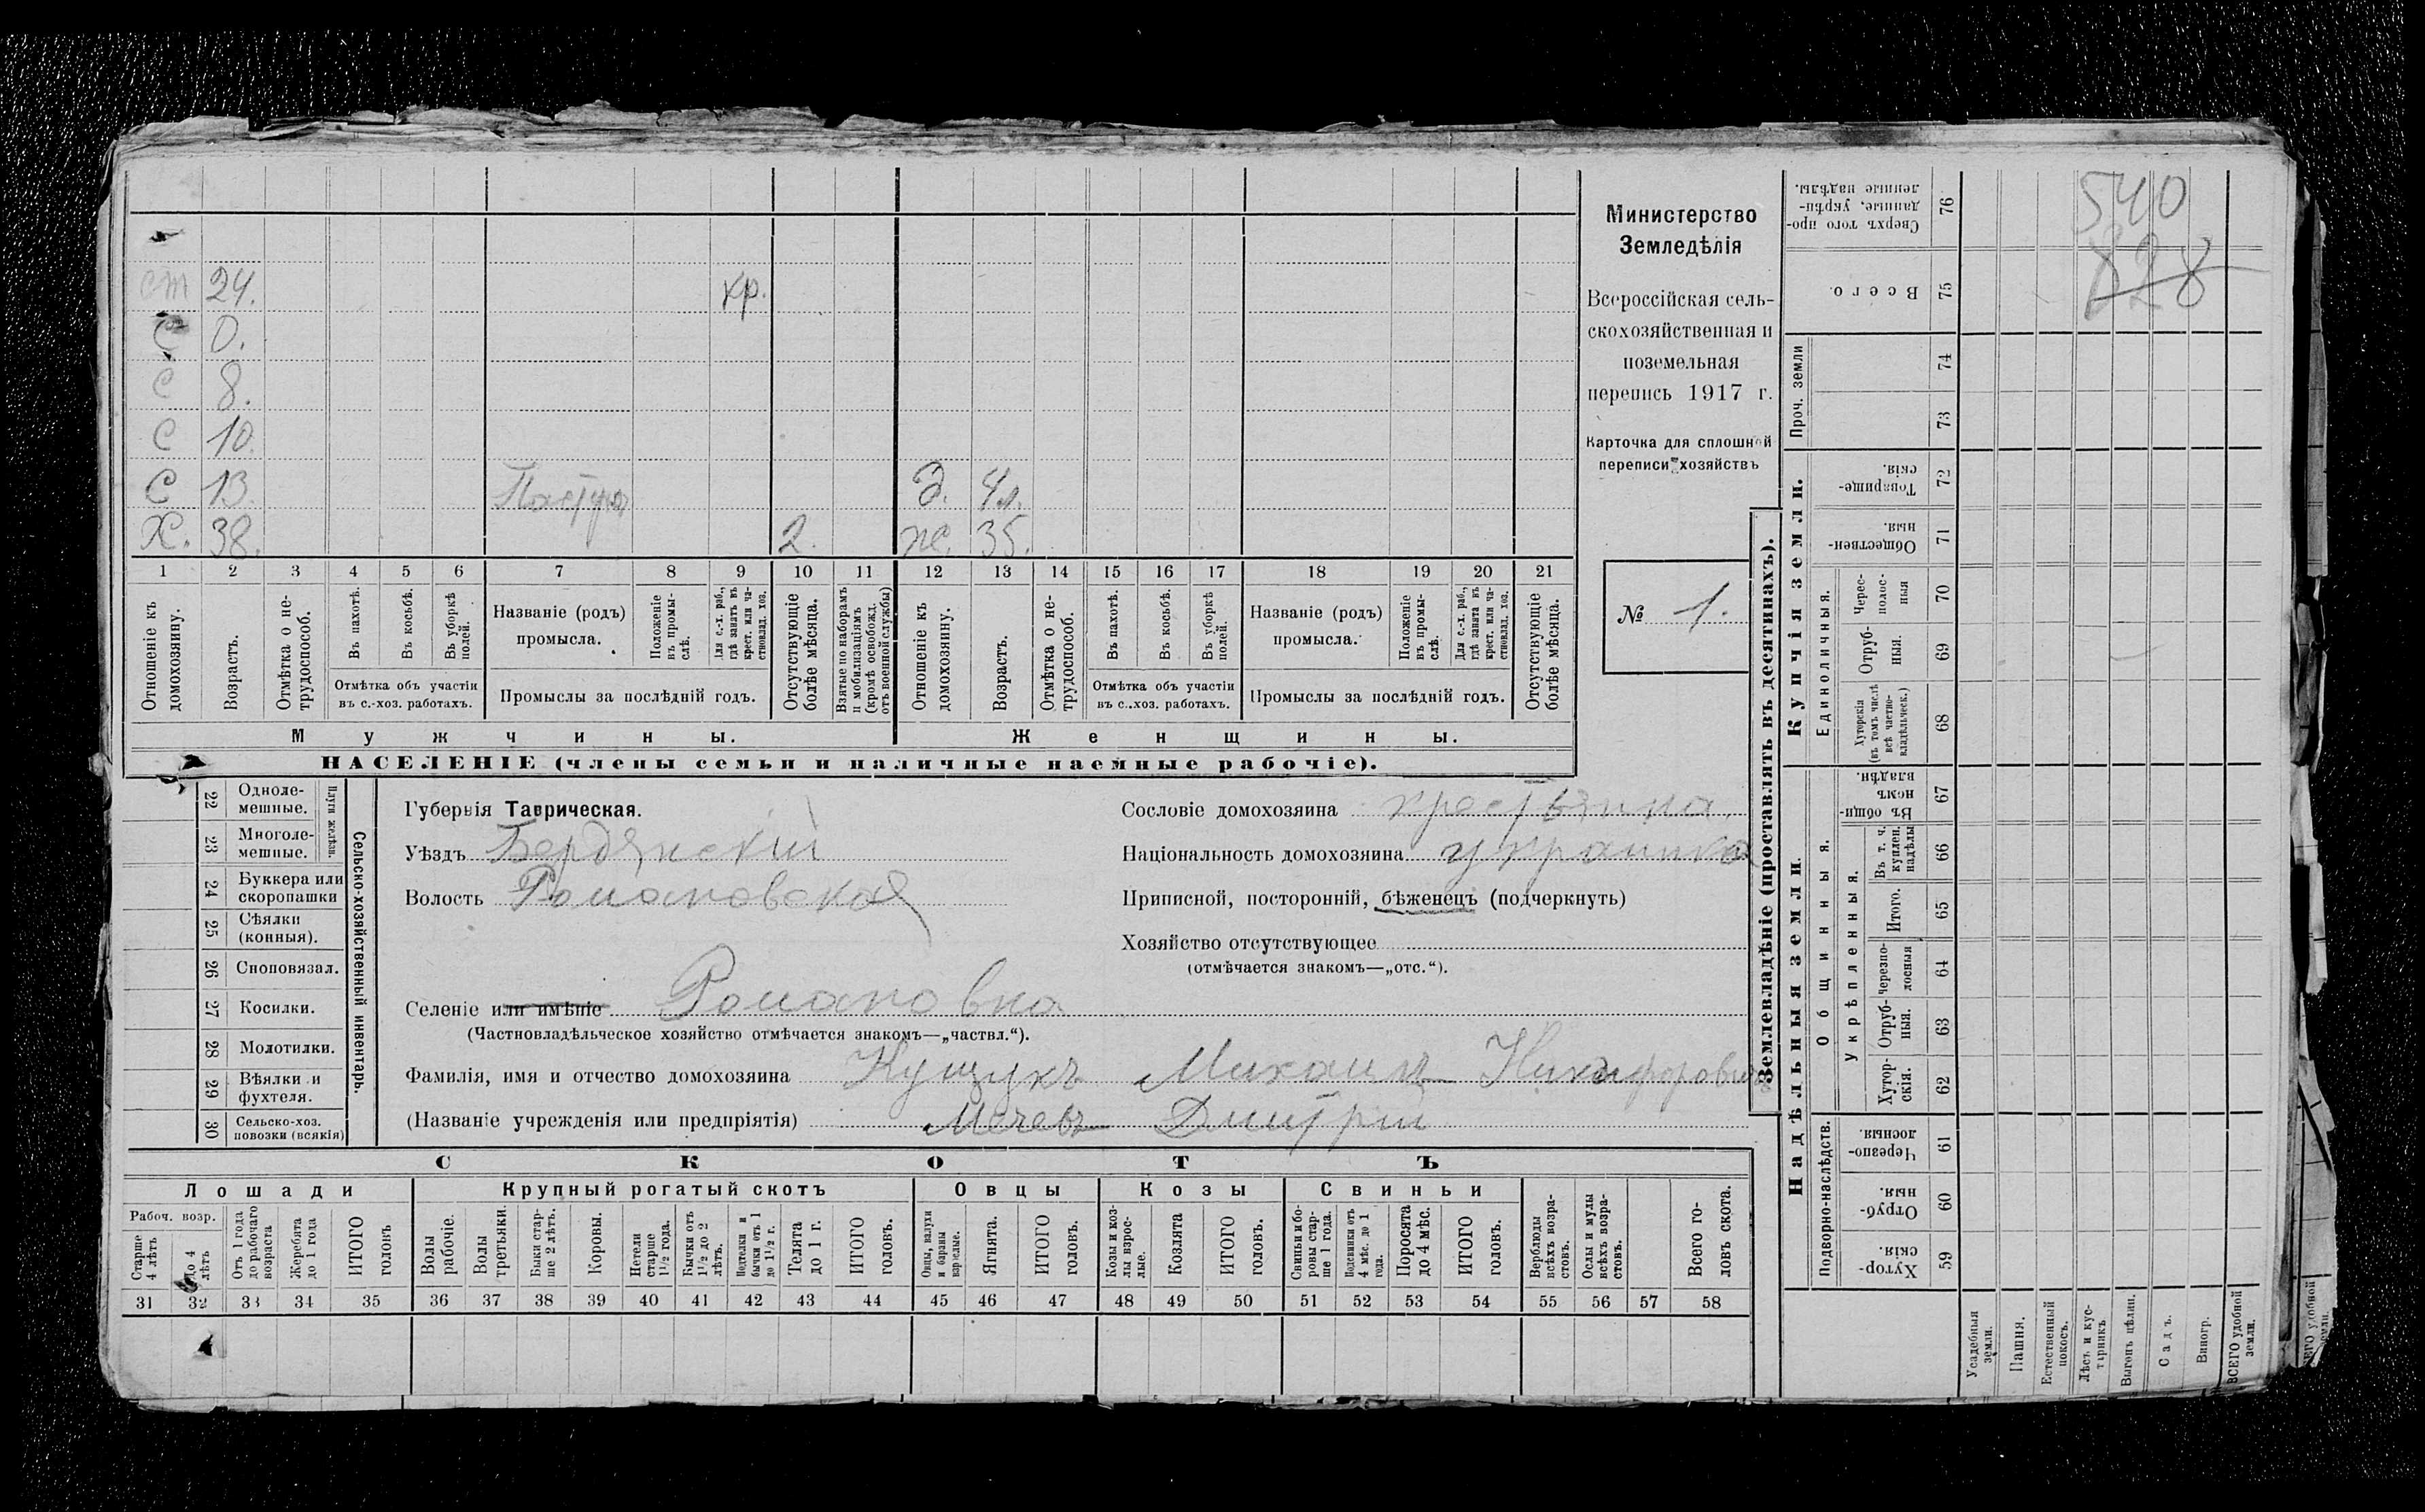 ст 24. кр.
С 0.
С 8.
С 10.
С 13. Пастухъ Д. 4 л.
Х. 38. 2. ж. 35.
1 2 3 4 5 6 7 8 9 10 11 12 13 14 15 16 17 18 19 20 21
Отношеніе къ домохозяину.
Возрастъ.
Отмѣтка о не-трудоспособ.
Въ пахотѣ.
Въ косьбѣ.
Въ уборкѣ полей.
Отмѣтка объ участіи
въ с.-хоз. работахъ.
Названіе (родъ)
промысла.
Положеніе въ промы-слѣ.
Для с.-х. раб., гдѣ занятъ въ крест. или ча-стновлад. хоз.
Промыслы за послѣдній годъ.
Отсутствующіе болѣе мѣсяца.
Взятые по наборамъ и мобилизаціямъ (кромѣ освобожд. отъ военной службы)
Отношеніе къ домохозяину.
Возрастъ.
Отмѣтка о не-трудоспособ.
Въ пахотѣ.
Въ косьбѣ.
Въ уборкѣ полей.
Отмѣтка объ участіи
въ с..хоз. работахъ.
Названіе (родъ)
промысла.
Положеніе въ промы-слѣ.
Для с.-х. раб., гдѣ занята въ крест. или ча-стновлад. хоз.
Промыслы за послѣдній годъ.
Отсутствующіе болѣе мѣсяца.
Мужчины.
Женщины.
НАСЕЛЕНІЕ (члены семьи и наличные наемные рабочіе).
Министерство
Земледѣлія
Всероссійская сель-
скохозяйственная и
поземельная
перепись 1917 г.
Карточка для сплошной
переписи хозяйствъ
№ 1.
22 Одноле-мешные.
23 Многоле-мешные.
Плуги желѣзн.
24 Буккера или скоропашки
25 Сѣялки (конныя).
26 Сноповязал.
27 Косилки.
28 Молотилки.
29 Вѣялки и фухтеля.
30 Сельско-хоз. повозки (всякія)
Сельско-хозяйственный инвентарь.
Губернія Таврическая.
Уѣздъ Бердянскій
Волость Романовская
Селеніе или имѣніе Романовка
(Частновладѣльческое хозяйство отмѣчается знакомъ—„частвл.“).
Фамилія, имя и отчество домохозяина Кущукъ Михаилъ Никифоровичъ
(Названіе учрежденія или предпріятія) Мечевъ Дмитрій
Сословіе домохозяина крестьянка
Національность домохозяина украинка
Приписной, посторонній, бѣженецъ (подчеркнуть)
Хозяйство отсутствующее
(отмѣчается знакомъ—„отс.“).
СКОТЪ
Лошади
Крупный рогатый скотъ
Овцы
Козы
Свиньи
Рабоч. возр.
Старше 4 лѣтъ
До 4 лѣтъ
Отъ 1 года до рабочаго возраста
Жеребята до 1 года
ИТОГО головъ
Волы рабочіе.
Волы третьяки.
Быки стар-ше 2 лѣтъ.
Коровы.
Нетели старше 1½ года.
Бычки отъ 1½ до 2 лѣтъ.
Подтелки и бычки отъ 1 до 1½ г.
Телята до 1 г.
ИТОГО головъ.
Овцы, валухи и бараны взрослые.
Ягнята.
ИТОГО головъ.
Козы и коз-лы взрос-лые.
Козлята
ИТОГО головъ.
Свиньи и бо-ровы стар-ше 1 года.
Подсвинки отъ 4 мѣс. до 1 года.
Поросята до 4 мѣс.
ИТОГО головъ.
Верблюды всѣхъ возра-стовъ.
Ослы и мулы всѣхъ возра-стовъ.
Всего го-ловъ скота.
31 32 33 34 35 36 37 38 39 40 41 42 43 44 45 46 47 48 49 50 51 52 53 54 55 56 57 58
Землевладѣніе (проставлять въ десятинахъ).
Надѣльныя земли.
Купчія земли.
Проч. земли
Подворно-наслѣдств.
Общинныя.
Укрѣпленныя.
Единоличныя.
Сверхъ того про-данные, укрѣп-ленные надѣлы. 76
Всего. 75
74
73
Товарище-скія. 72
Обществен-ныя. 71
Черес-полос-ныя 70
Отруб-ныя. 69
Хуторскія (въ томъ числѣ всѣ частно-владѣльческ.) 68
Въ общи-номъ владѣн. 67
Въ т. ч. куплен. надѣлы 66
Итого. 65
Черезпо-лосныя 64
Отруб-ныя. 63
Хутор-скія. 62
Черезпо-лосныя. 61
Отруб-ныя. 60
Хутор-скія. 59
Усадебныя земли.
Пашня.
Естественный покосъ.
Лѣсъ и кус-тарникъ
Выгонъ цѣлин.
Садъ.
Виногр.
ВСЕГО удобной земли.
540
828